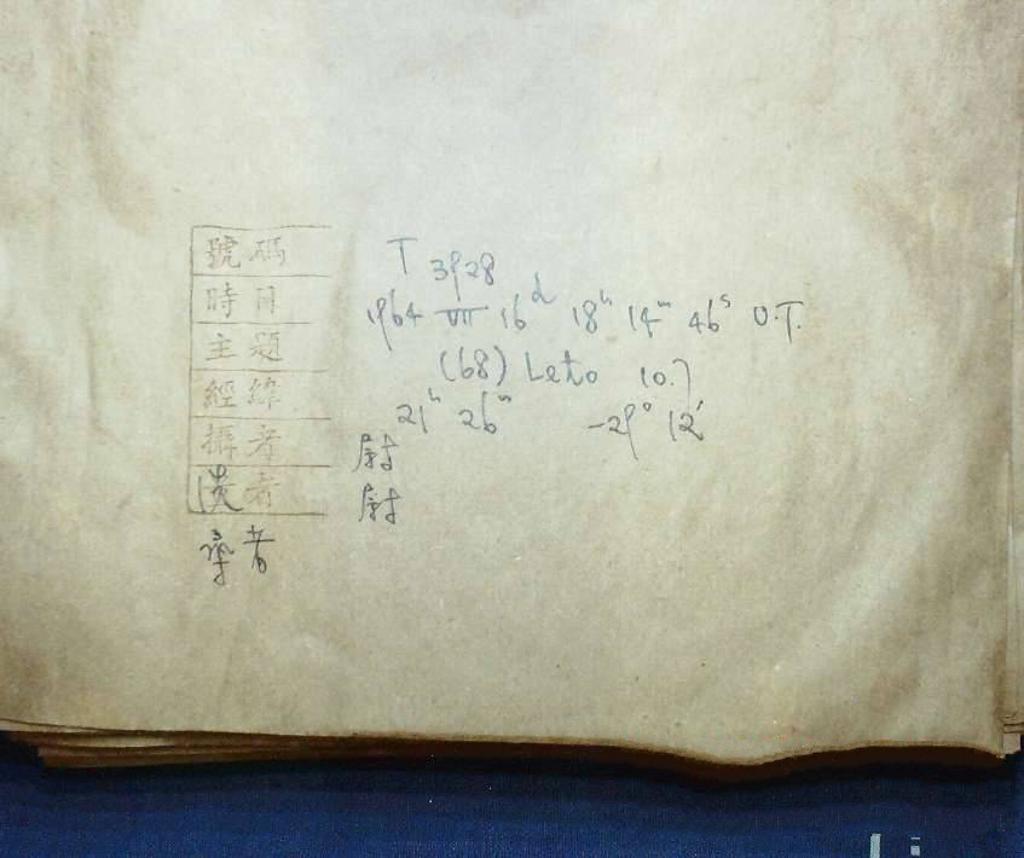 號碼 T 3928
時日 1964 VII 16ᵈ 18ʰ 14ᵐ 46ˢ U.T.
主題 (68) Leto 10.7
經緯 21ʰ 26ᵐ -29° 12′
攝者
者
者